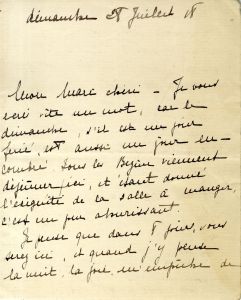 dimanche 28 Juillet 18
Mon Marc chéri - Je vous
écris vite un mot, car le
dimanche, s'il est un jour
férié, est aussi un jour en-
combré. Tous les viennent
déjeuner ici, et étant donné
l'exiguité de la salle à manger,
c'est un peu ahurissant.
Je pense que dans 8 jours, vous
serez ici, et quand j'y pense
la nuit, la joie m'empêche de